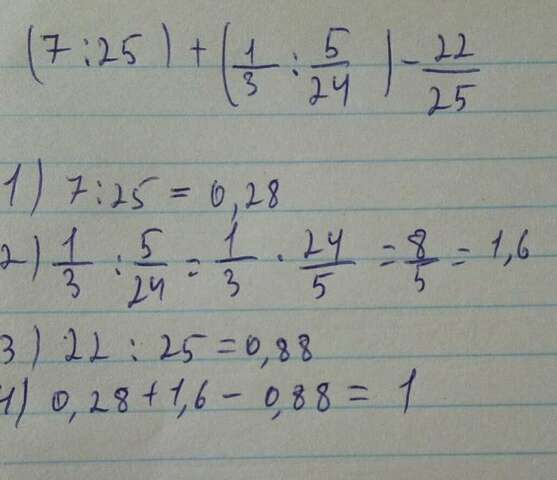 (7:25) + (1/3 : 5/24) - 22/25
1) 7:25 = 0,28
2) 1/3 : 5/24 = 1/3 · 24/5 = 8/5 = 1,6
3) 22 : 25 = 0,88
4) 0,28 + 1,6 - 0,88 = 1